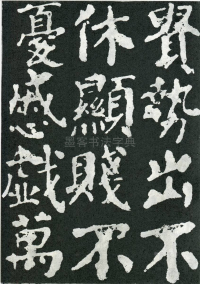 賢勢出不
休顯賤不
憂戚戱萬
墨客书法字典